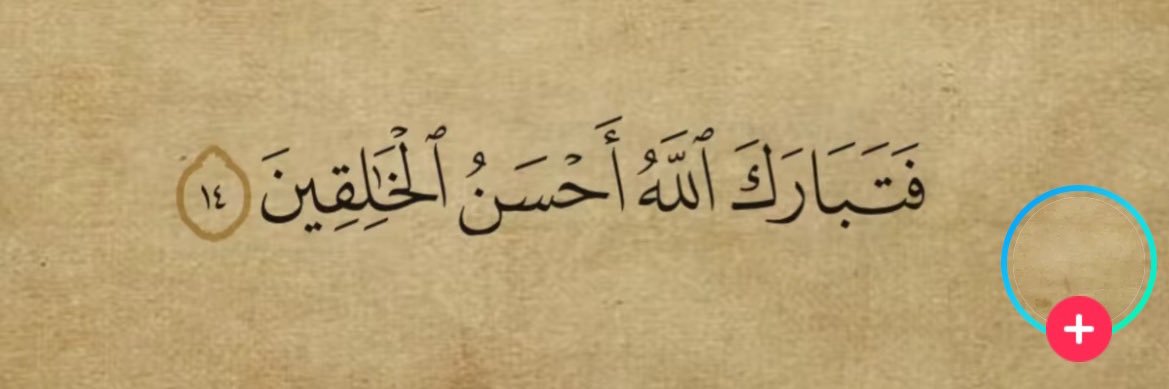 فَتَبَارَكَ ٱللَّهُ أَحْسَنُ ٱلْخَٰلِقِينَ ١٤